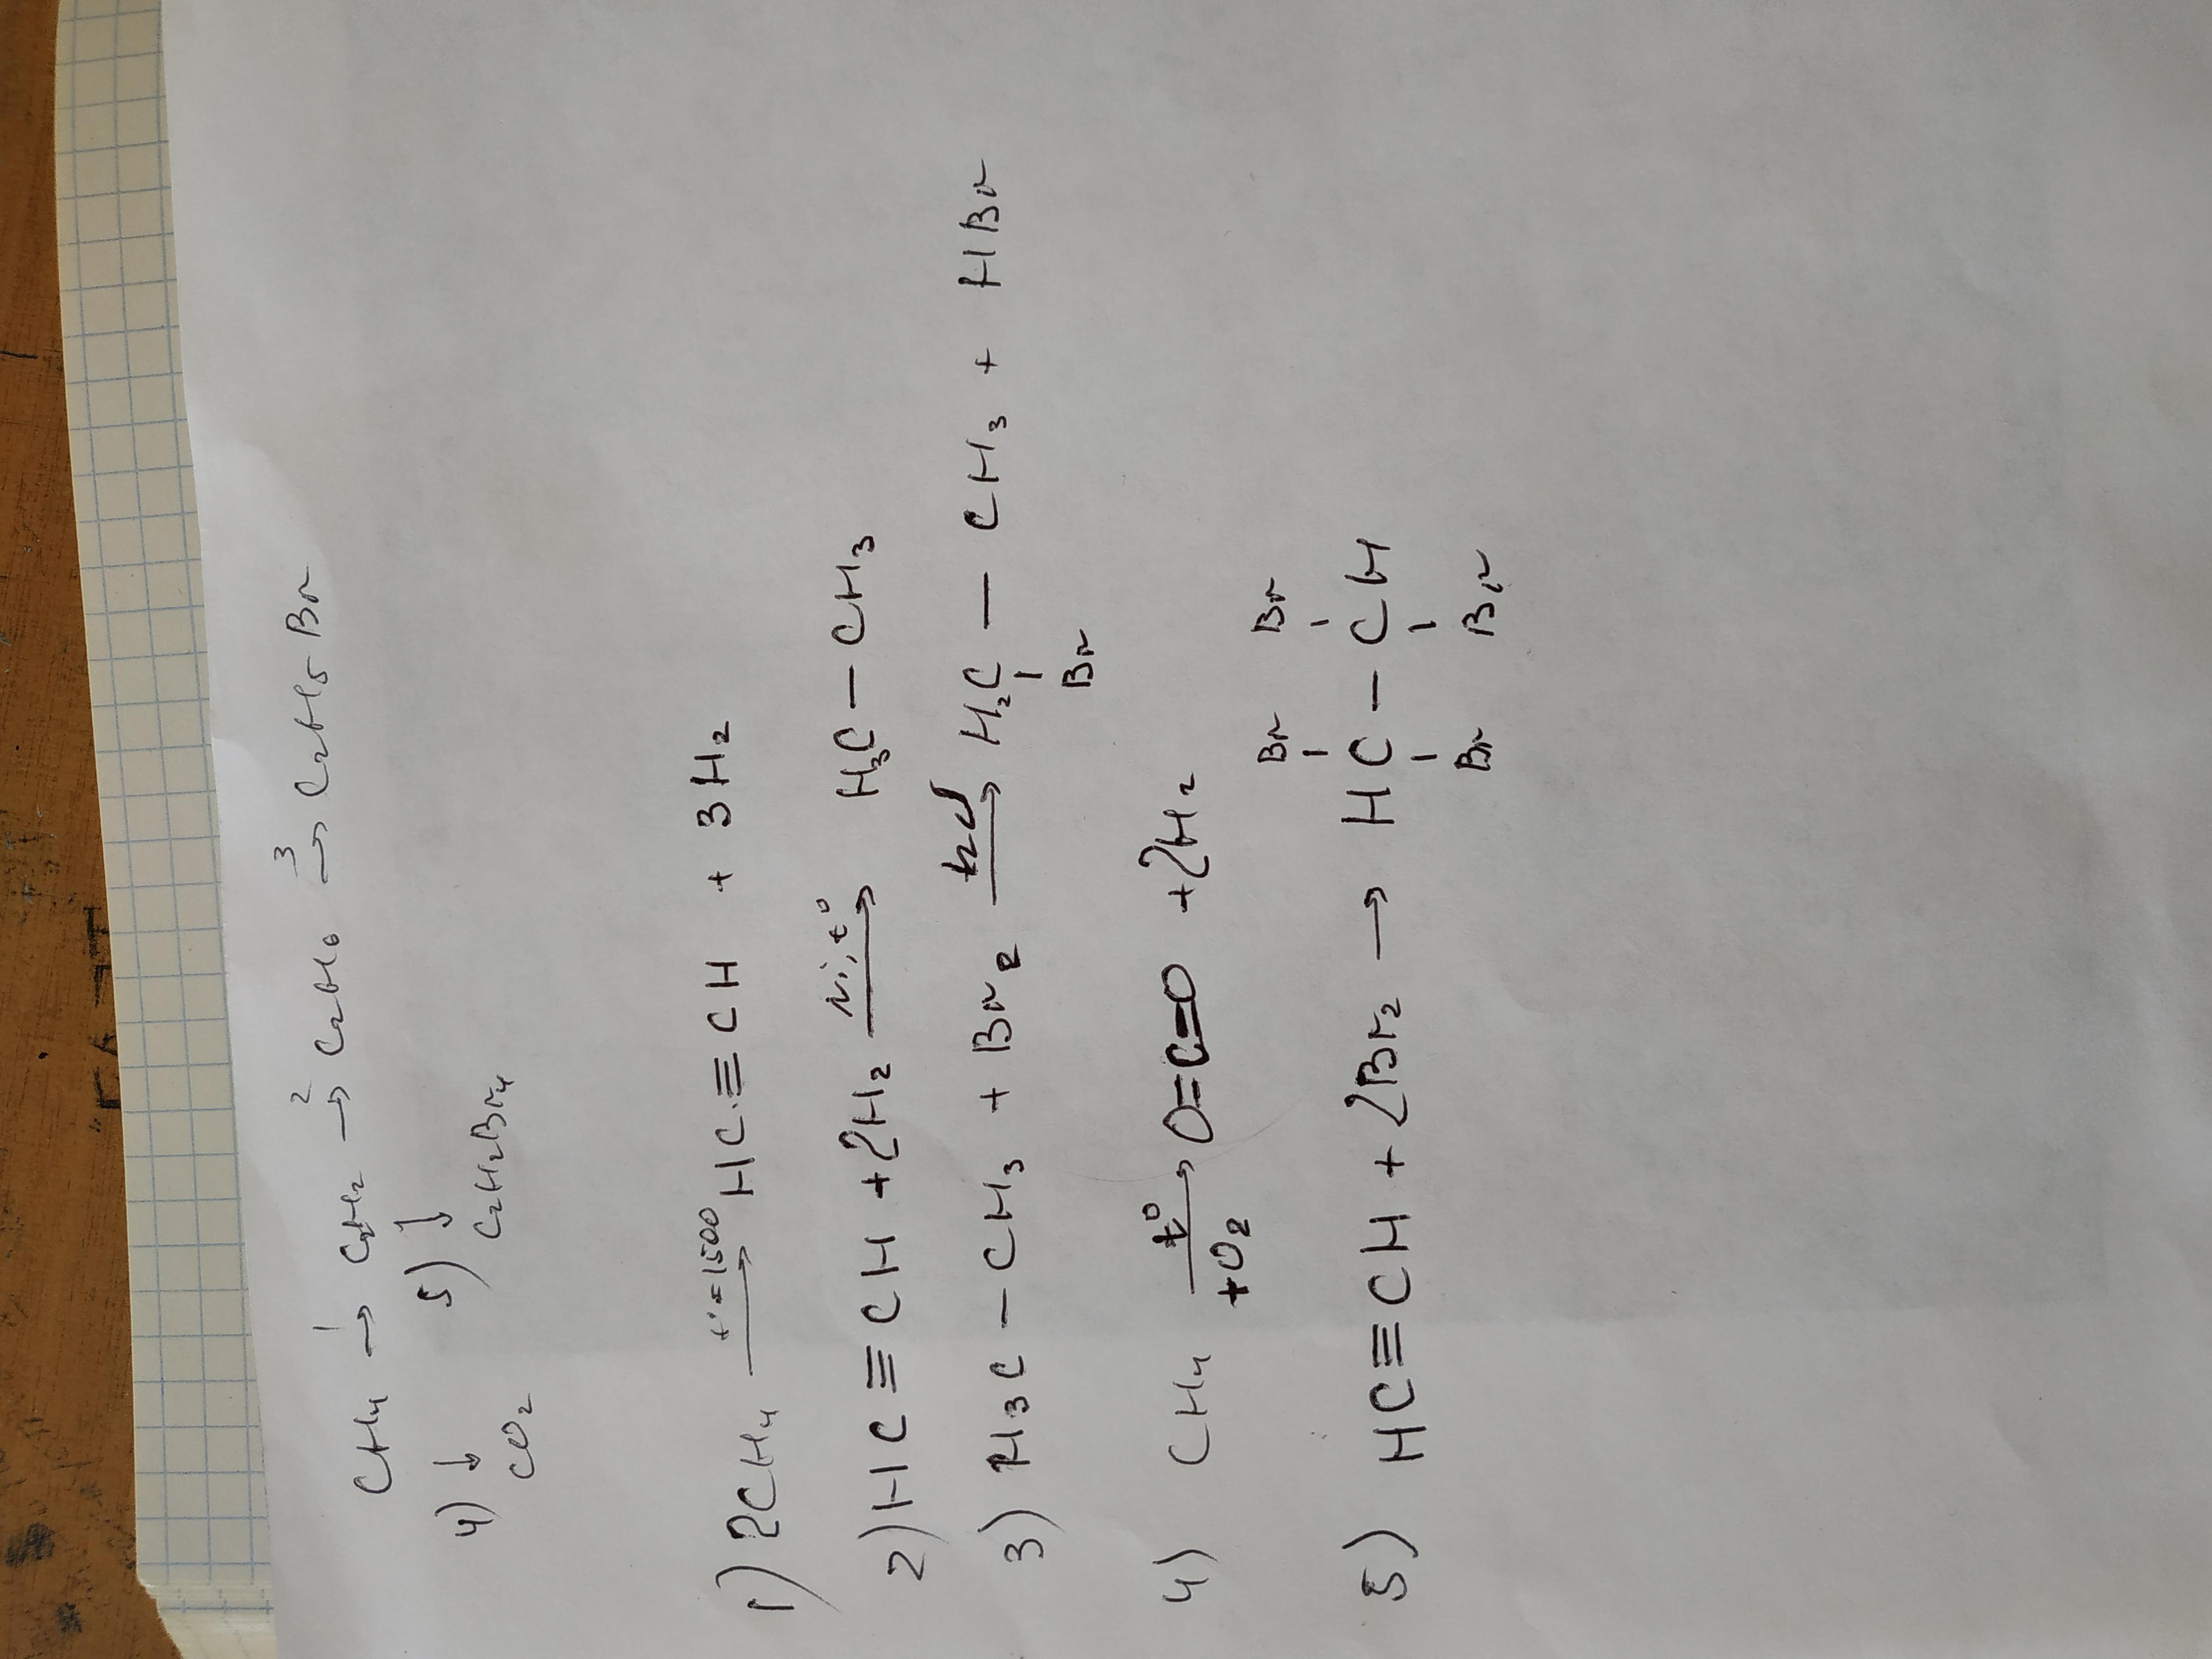 CH₄ →¹ C₂H₂ →² C₂H₆ →³ C₂H₅Br
4)↓ 5)↓
CO₂ C₂H₂Br₄
1) 2CH₄ —t°=1500→ HC≡CH + 3H₂
2) HC≡CH + 2H₂ —Ni, t°→ H₃C–CH₃
3) H₃C–CH₃ + Br₂ → H₂C–CH₃ + HBr
Br
4) CH₄ —t°→ O=C=O + 2H₂
+O₂
Br Br
5) HC≡CH + 2Br₂ → HC–CH
Br Br